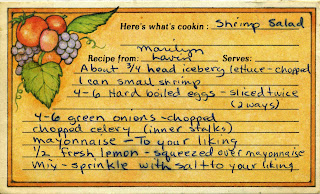 Here's what's cookin: Shrimp Salad
Marilyn
Recipe from: Lavin Serves:
About 3/4 head iceberg lettuce - chopped
1 can small shrimp
4-6 Hard boiled eggs - sliced twice
(2 ways)
4-6 green onions - chopped
chopped celery (inner stalks)
mayonnaise - To your liking
1/2 fresh lemon - squeezed over mayonnaise
Mix - sprinkle with salt to your liking